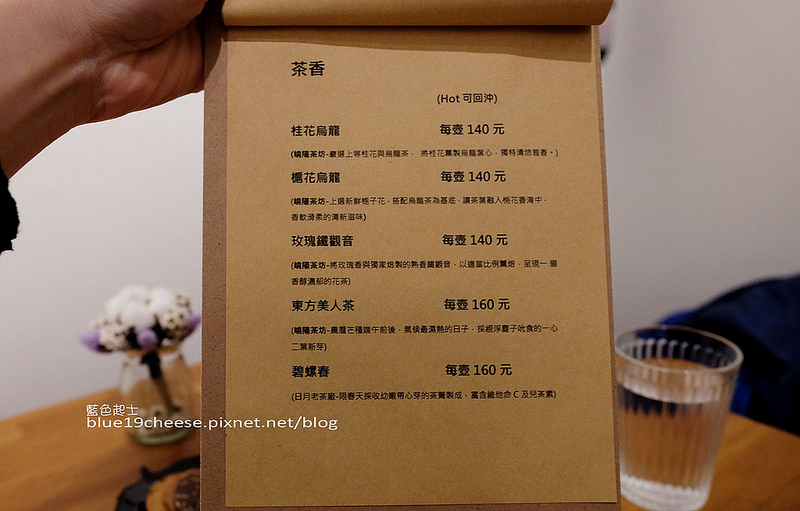 茶香
(Hot 可回沖)
桂花烏龍 每壺 140 元
(曉陽茶坊-嚴選上等桂花與烏龍茶， 將桂花薰製烏龍葉心，獨特清悠雅香。)
梔花烏龍 每壺 140 元
(曉陽茶坊-上選新鮮梔子花，搭配烏龍茶為基底，讓茶葉融入梔花香海中，
香軟滑柔的清新滋味)
玫瑰鐵觀音 每壺 140 元
(曉陽茶坊-將玫瑰香與獨家焙製的熟香鐵觀音，以適當比例薰焙，呈現一 道
香醇濃郁的花茶)
東方美人茶 每壺 160 元
(曉陽茶坊-農曆芒種端午前後，氣候最濕熱的日子，採經浮塵子吮食的一心
二葉新芽)
碧螺春 每壺 160 元
(日月老茶廠-限春天採收幼嫩帶心芽的茶菁製成，富含維他命 C 及兒茶素)
藍色起士
blue19cheese.pixnet.net/blog